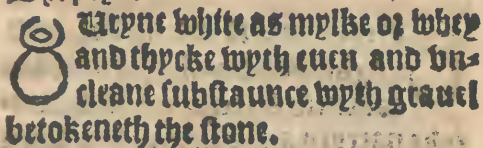 8 Uryne white as mylke or whey
and thycke wyth euen and vn=
cleane substaunce wyth grauel
betokeneth the stone.